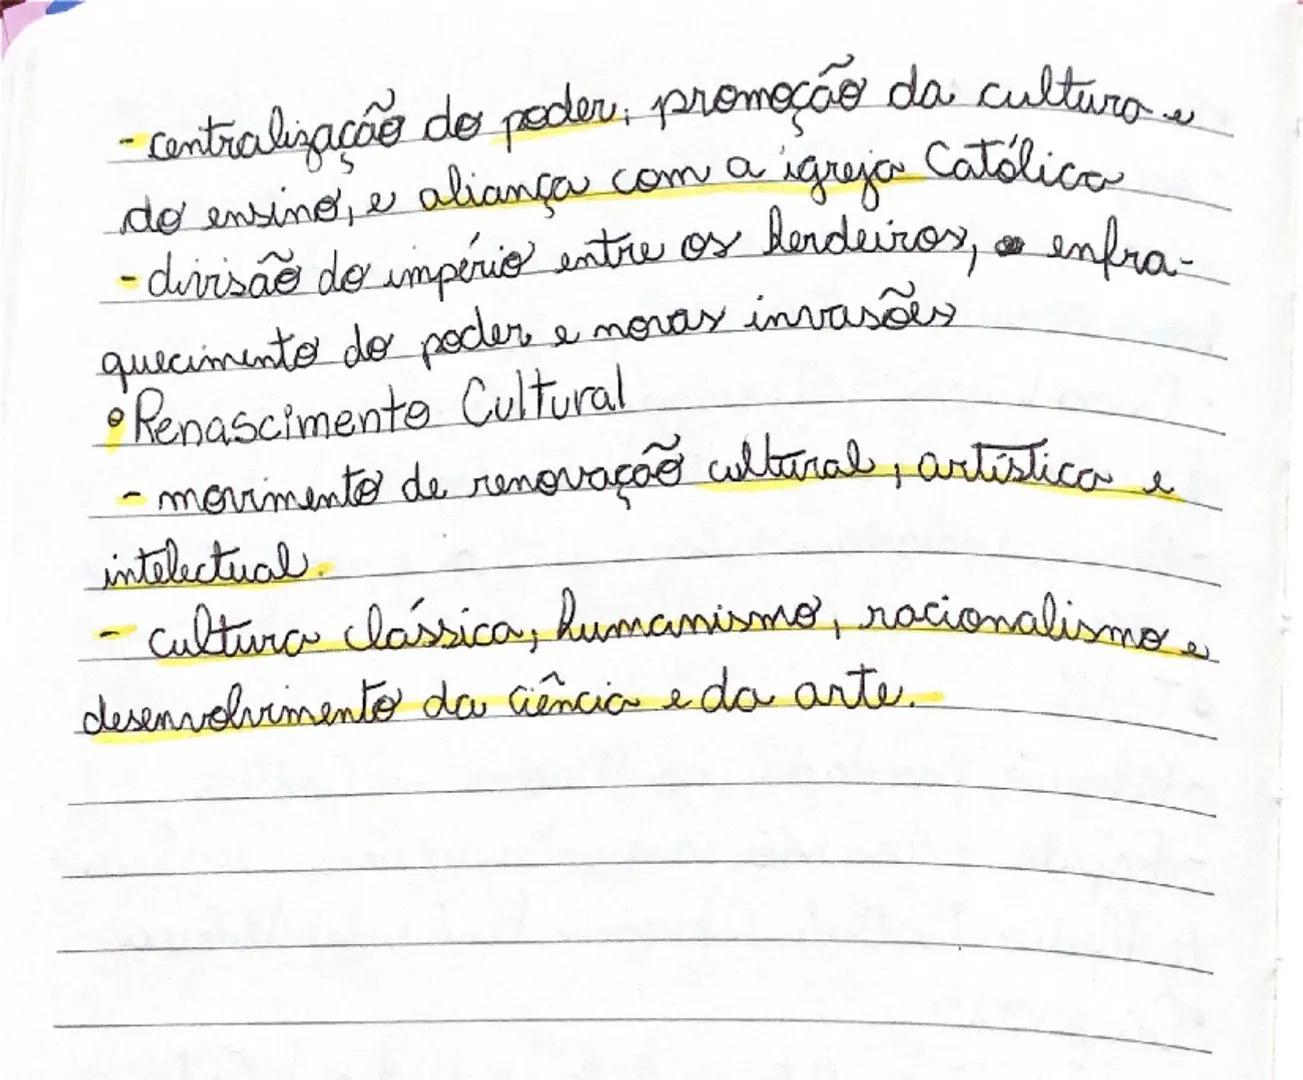 - centralização do poder, promoção da cultura e
do ensino, e aliança com a igreja Católica
- divisão do império entre os herdeiros, enfra-
quecimento do poder e novas invasões
• Renascimento Cultural
- movimento de renovação cultural, artística e
intelectual.
- cultura clássica, humanismo, racionalismo e
desenvolvimento da ciência e da arte.